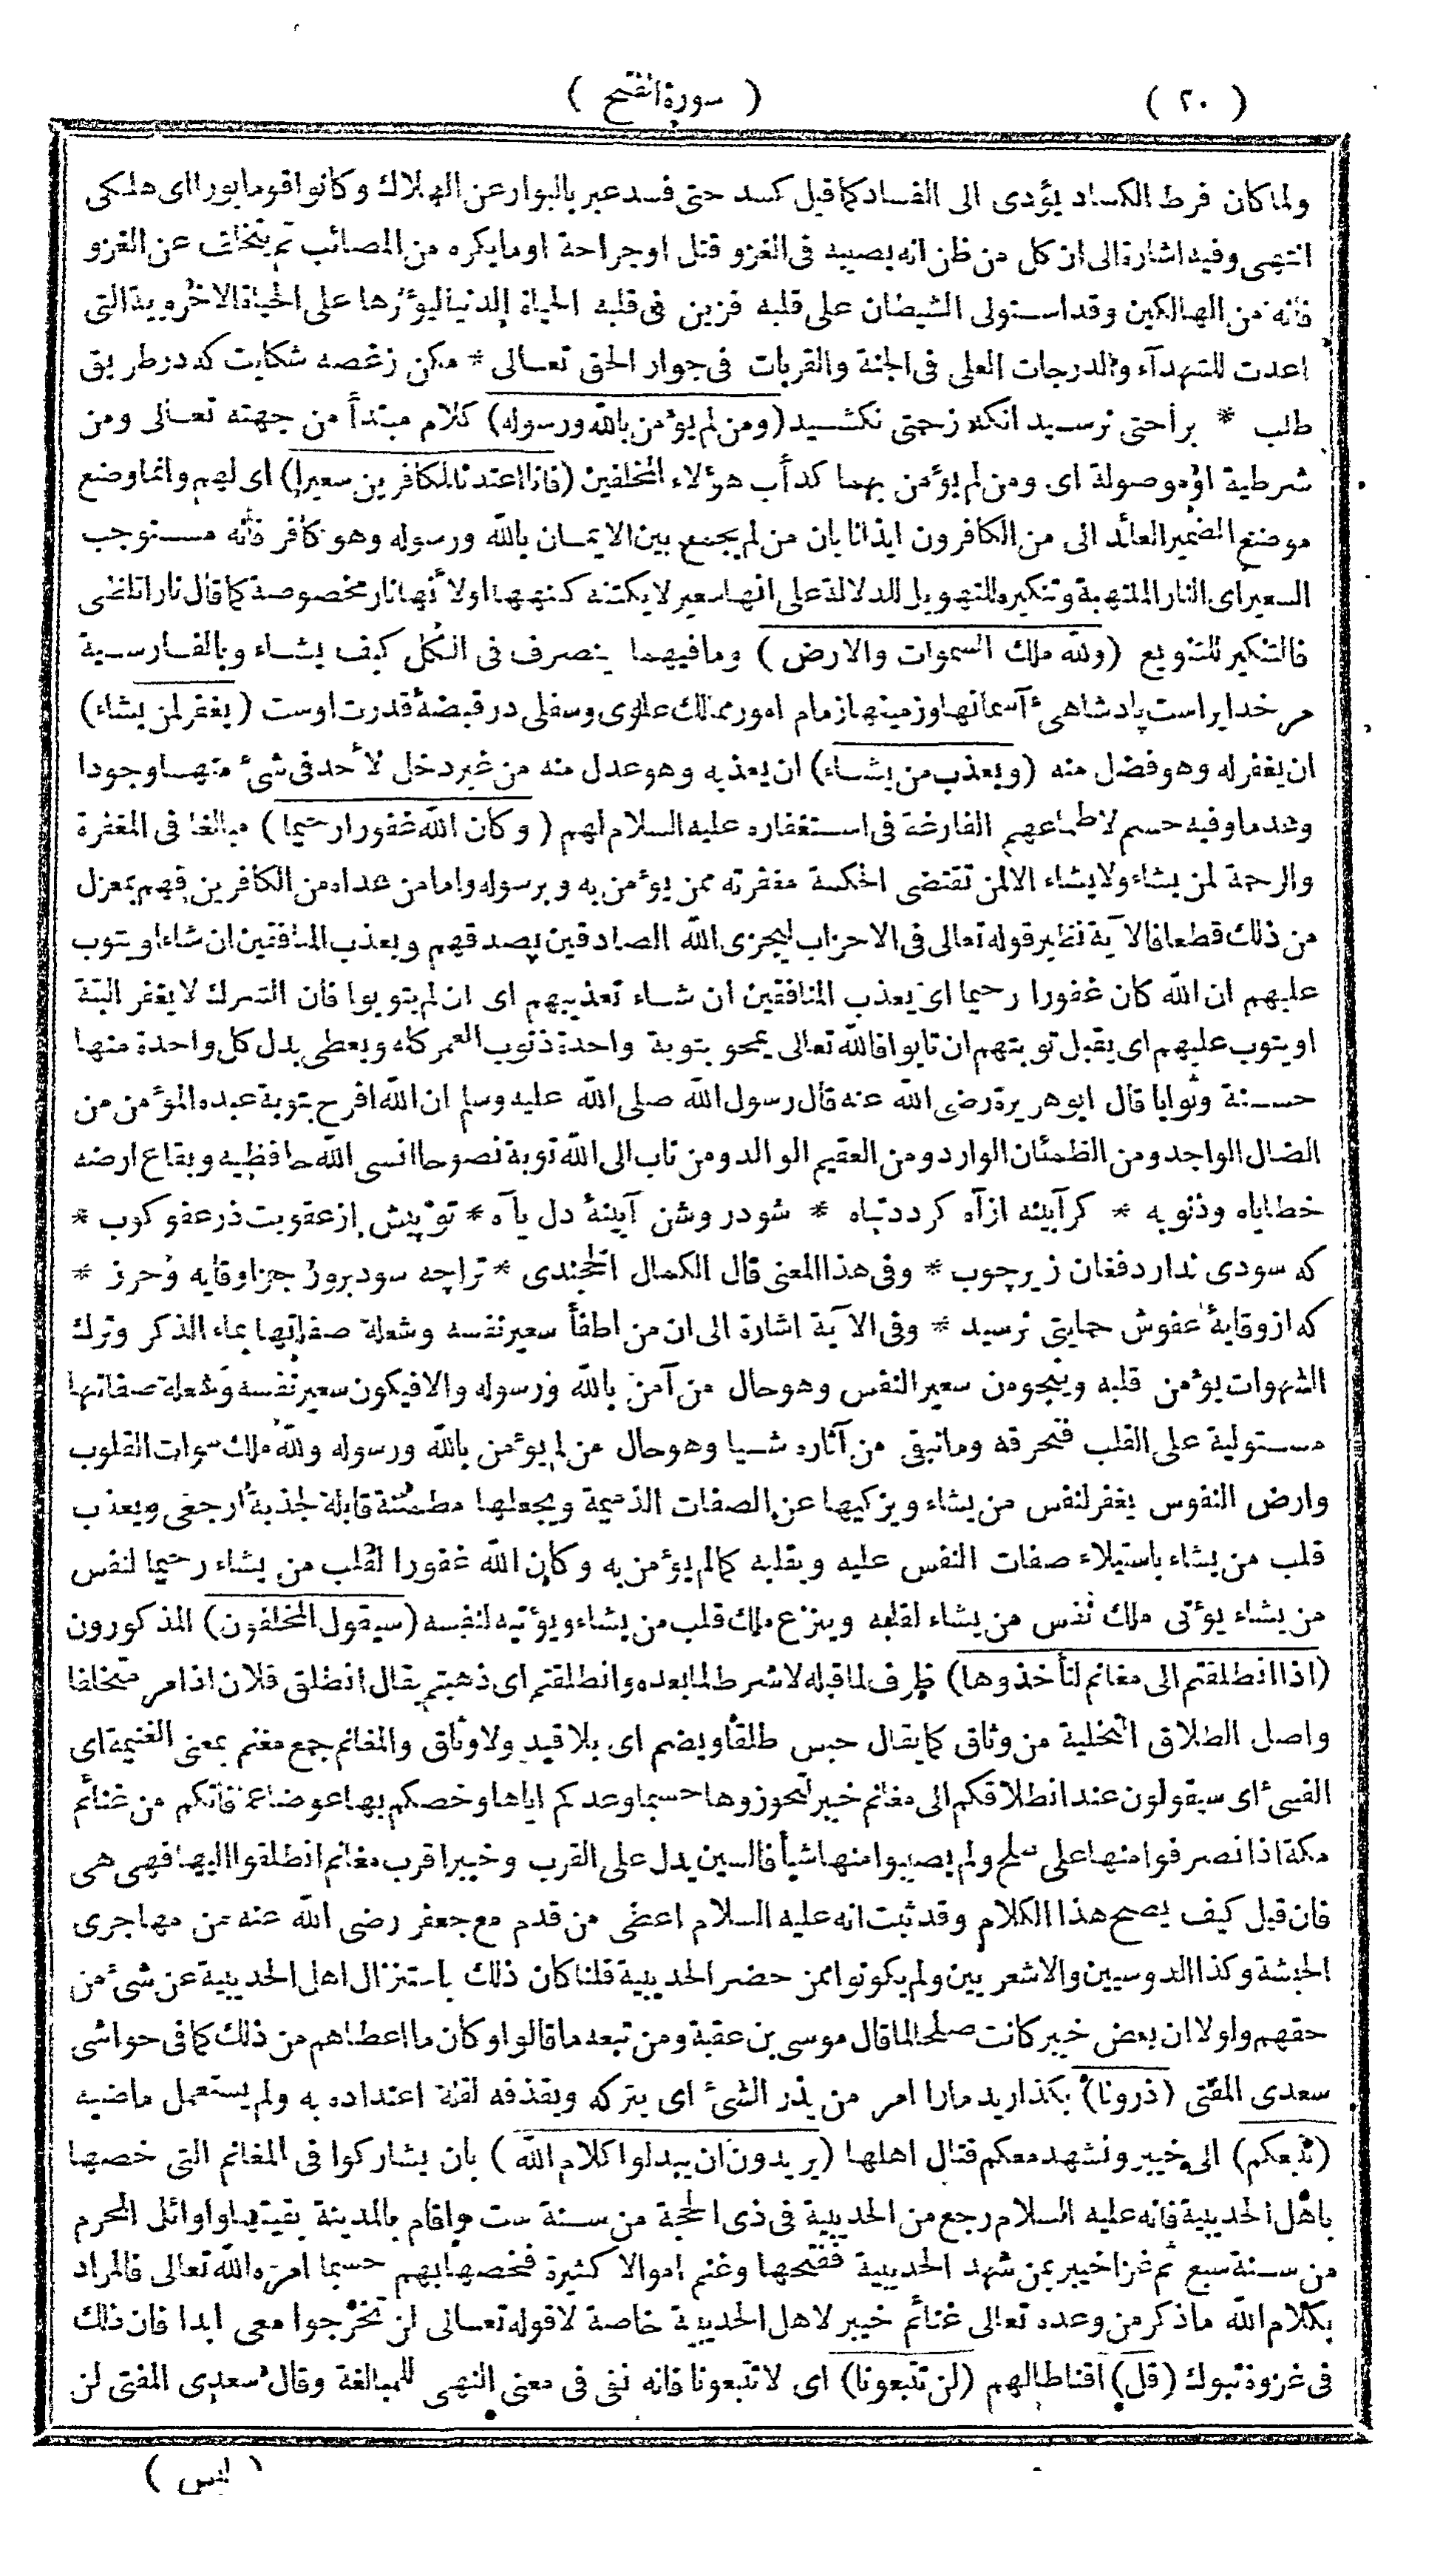 ( ٢٠ ) ( سورة الفتح )
ولما كان فرط الكساد يؤدى الى الفساد كما قيل كسد حتى فسد عبر بالبوار عن الهلاك وكانوا قوما بورا اى هلكى
انتهى وفيه اشارة الى ان كل من ظن انه يصيبه فى الغزو قتل او جراحة او ما يكره من المصائب ثم يتخلف عن الغزو
فانه من الهالكين وقد استولى الشيطان على قلبه فزين فى قلبه الحياة الدنيا ليؤثرها على الحياة الاخروية التى
اعدت للشهدآء والدرجات العلى فى الجنة والقربات فى جوار الحق تعالى * مكن زغصه شكايت كه در طريق
طلب * براحتى نرسيد آنكه زحمتى نكشيد (ومن لم يؤمن بالله ورسوله) كلام مبتدأ من جهته تعالى ومن
شرطية او موصولة اى ومن لم يؤمن بهما كدأب هؤلاء المخلفين (فانا اعتدنا للكافرين سعيرا) اى لهم وانما وضع
موضع الضمير العائد الى من الكافرون ايذانا بان من لم يجمع بين الايمان بالله ورسوله وهو كافر فانه مستوجب
السعير اى النار الملتهبة وتنكيره للتهويل للدلالة على انها سعير لا يكتنه كنهها او لأنها نار مخصوصة كما قال نارا تلظى
فالتنكير للتنويع (ولله ملك السموات والارض) وما فيهما يتصرف فى الكل كيف يشاء وبالفارسية
مر خدايراست پادشاهىء آسمانها وزمينها زمام امور ممالك علوى وسفلى در قبضۀ قدرت اوست (يغفر لمن يشاء)
ان يغفر له وهو فضل منه (ويعذب من يشاء) ان يعذبه وهو عدل منه من غير دخل لأحد فى شىء منهما وجودا
وعدما وفيه حسم لاطماعهم الفارغة فى استغفاره عليه السلام لهم (وكان الله غفورا رحيما) مبالغا فى المغفرة
والرحمة لمن يشاء ولا يشاء الا لمن تقتضى الحكمة مغفرته ممن يؤمن به وبرسوله واما من عداه من الكافرين فهم بمعزل
من ذلك قطعا فالآية نظير قوله تعالى فى الاحزاب ليجزى الله الصادقين بصدقهم ويعذب المنافقين ان شاء او يتوب
عليهم ان الله كان غفورا رحيما اى يعذب المنافقين ان شاء تعذيبهم اى ان لم يتوبوا فان الشرك لا يغفر البتة
او يتوب عليهم اى يقبل توبتهم ان تابوا فالله تعالى يمحو بتوبة واحدة ذنوب العمر كله ويعطى بدل كل واحدة منها
حسنة وثوابا قال ابو هريرة رضى الله عنه قال رسول الله صلى الله عليه وسلم ان الله افرح بتوبة عبده المؤمن من
الضال الواجد ومن الظمئان الوارد ومن العقيم الوالد ومن تاب الى الله توبة نصوحا انسى الله حافظيه وبقاع ارضه
خطاياه وذنوبه * كر آيينه از آه كردد تباه * شود روشن آيينۀ دل بآه * توپيش از عقوبت در عفو كوب *
كه سودى ندارد فغان زير چوب * وفى هذا المعنى قال الكمال الخجندى * ترا چه سود بروز جزا وقايه وحرز *
كه از وقايۀ عفوش حمايتى نرسيد * وفى الآية اشارة الى ان من اطفأ سعير نفسه وشعلة صفاتها بماء الذكر وترك
الشهوات يؤمن قلبه وينجو من سعير النفس وهو حال من آمن بالله ورسوله والا فيكون سعير نفسه وشعلة صفاتها
مستولية على القلب فتحرقه وما تبقى من آثاره شيا وهو حال من لم يؤمن بالله ورسوله ولله ملك سموات القلوب
وارض النفوس يغفر لنفس من يشاء ويزكيها عن الصفات الذميمة ويجعلها مطمئنة قابلة لجذبة ارجعى ويعذب
قلب من يشاء باستيلاء صفات النفس عليه ويقلبه كما لم يؤمن به وكان الله غفورا لقلب من يشاء رحيما لنفس
من يشاء يؤتى ملك نفس من يشاء لقلبه وينزع ملك قلب من يشاء ويؤتيه لنفسه (سيقول المخلفون) المذكورون
(اذا انطلقتم الى مغانم لتأخذوها) ظرف لما قبله لا شرط لما بعده وانطلقتم اى ذهبتم يقال انطلق فلان اذا مر متخلفا
واصل الطلاق التخلية من وثاق كما يقال حبس طلقا ويضم اى بلا قيد ولا وثاق والمغانم جمع مغنم بمعنى الغنيمة اى
الفيىء اى سيقولون عند انطلاقكم الى مغانم خيبر لتحوزوها حسبما وعدكم اياها وخصكم بها عوضا عما فاتكم من غنائم
مكة اذا نصرفوا منها على صلح ولم يصيبوا منها شيأ فالسين يدل على القرب وخيبر اقرب مغانم انطلقوا اليها فهى هى
فان قيل كيف يصح هذا الكلام وقد ثبت انه عليه السلام اعطى من قدم مع جعفر رضى الله عنه من مهاجرى
الحبشة وكذا الدوسيين والاشعريين ولم يكونوا ممن حضر الحديبية قلنا كان ذلك باستنزال اهل الحديبية عن شىء من
حقهم ولولا ان بعض خيبر كانت صلحا لما قال موسى بن عقبة ومن تبعه ما قالوا وكان ما اعطاهم من ذلك كما فى حواشى
سعدى المفتى (ذرونا) بكذاريد مارا امر من يذر الشىء اى يتركه ويقذفه لقلة اعتداده به ولم يستعمل ماضيه
(نتبعكم) الى خيبر ونشهد معكم قتال اهلها (يريدون ان يبدلوا كلام الله) بان يشاركوا فى المغانم التى خصها
باهل الحديبية فانه عليه السلام رجع من الحديبية فى ذى الحجة من سنة ست واقام بالمدينة بقيتها واوائل المحرم
من سنة سبع ثم غزا خيبر بمن شهد الحديبية ففتحها وغنم اموالا كثيرة فخصها بهم حسبما امره الله تعالى فالمراد
بكلام الله ما ذكر من وعده تعالى غنائم خيبر لاهل الحديبية خاصة لا قوله تعالى لن تخرجوا معى ابدا فان ذلك
فى غزوة تبوك (قل) اقناطا لهم (لن تتبعونا) اى لا تتبعونا فانه نفى فى معنى النهى للمبالغة وقال سعدى المفتى لن
( ليس )